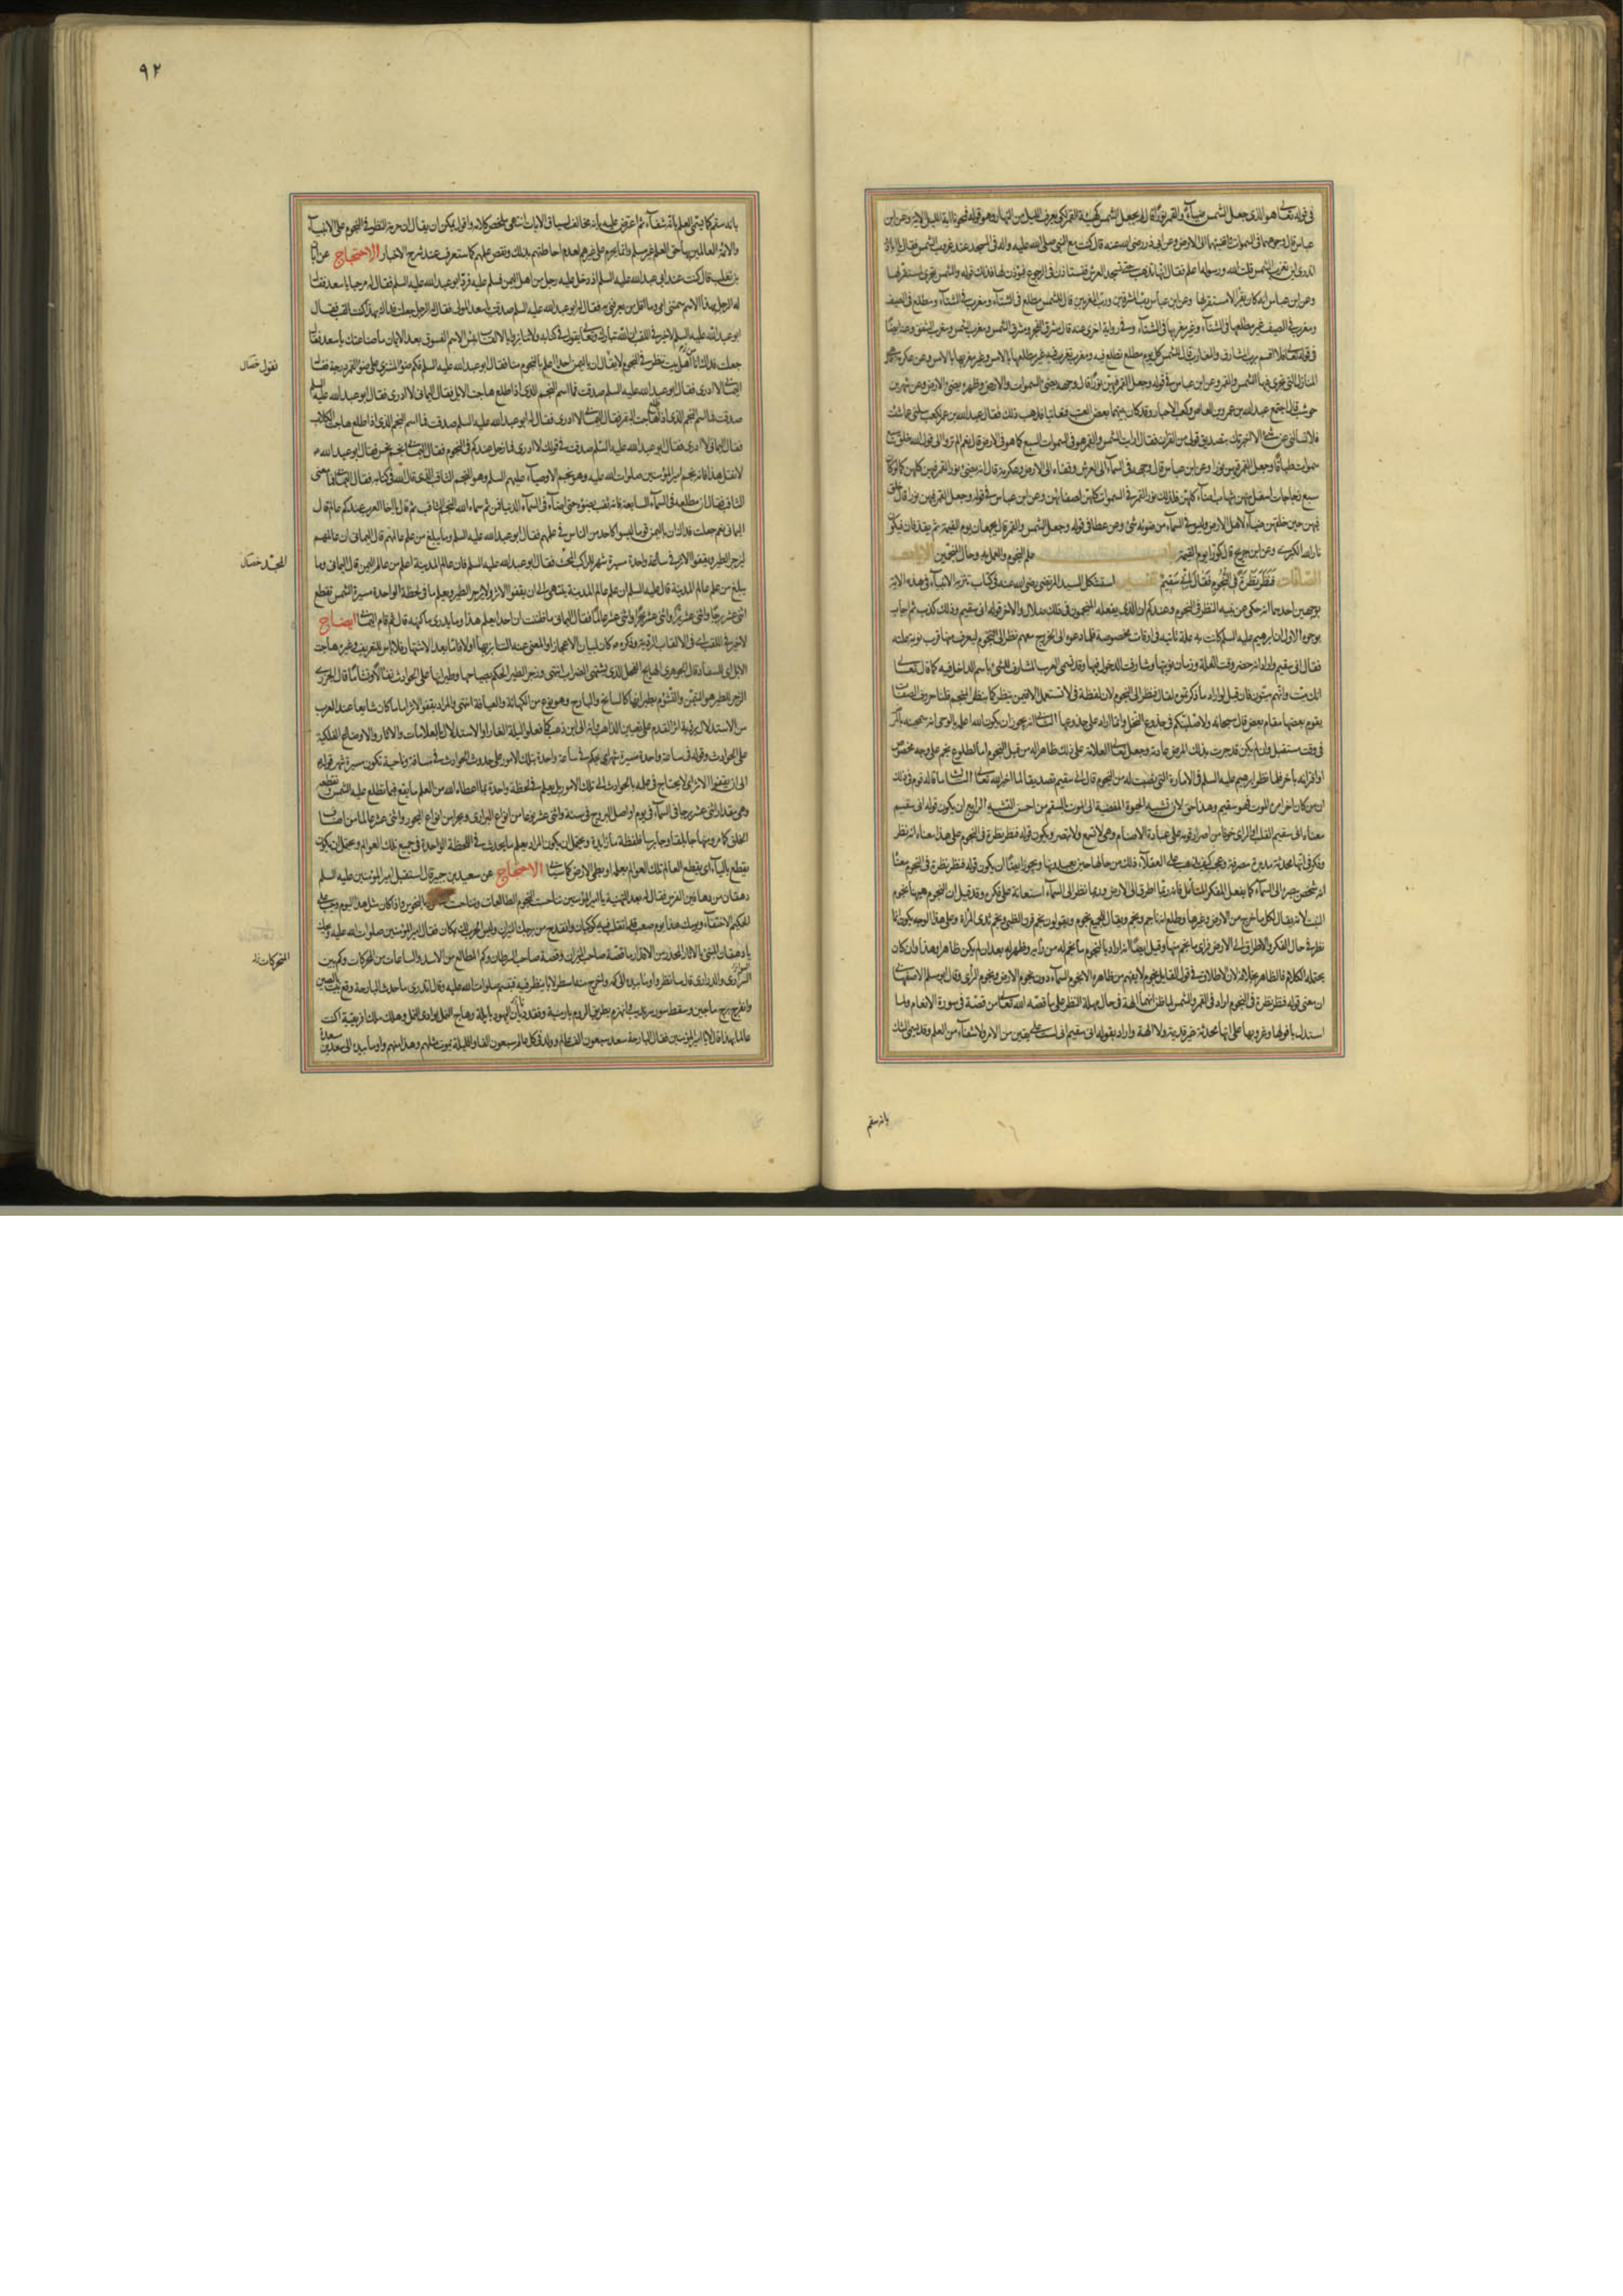 في قوله تعالى هو الذي جعل الشمس ضياء والقمر نورا قال لم يجعل الشمس كهيئة القمر لكي يعرف الليل من النهار وهو قوله فمحونا اية الليل الاية وعن ابن
عباس قال وجوههما في السموات واقفيتهما الى الارض وعن ابي ذر رضي الله عنه قال كنت مع النبي صلى الله عليه واله في المسجد عند غروب الشمس فقال يا ابا ذر
اتدري اين تغرب الشمس قلت الله ورسوله اعلم فقال انها تذهب حتى تسجد تحت العرش فتستأذن في الرجوع فيؤذن لها فذلك قوله والشمس تجري لمستقر لها
وعن ابن عباس انه كان يقرأ لا مستقر لها وعن ابن عباس رب المشرقين ورب المغربين قال للشمس مطلع في الشتاء ومغرب في الشتاء ومطلع في الصيف
ومغرب في الصيف غير مطلعها في الشتاء وغير مغربها في الشتاء وفي رواية اخرى عنه قال مشرق الفجر ومشرق الشمس ومغرب الشمس ومغرب الشفق وعنه ايضا
في قوله تعالى فلا اقسم برب المشارق والمغارب قال للشمس كل يوم مطلع تطلع فيه ومغرب تغرب فيه غير مطلعها بالامس وغير مغربها بالامس وعن عكرمة
المنازل التي تجري فيها الشمس والقمر وعن ابن عباس في قوله وجعل القمر فيهن نورا قال وجهه يضيئ السموات والارض وظهره يضيئ الارض وعن شهر بن
حوشب قال اجتمع عبد الله بن عمرو بن العاص وكعب الاحبار وقد كان بينهما بعض العتب فتعاتبا فذهب ذلك فقال عبد الله بن عمرو لكعب سلني عما شئت
فلا تسألني عن شئ الا اخبرتك بتصديق قولي من القران فقال ارأيت الشمس والقمر هو في السموات السبع كما هو في الارض قال نعم الم تروا الى قول الله خلق سبع
سموات طباقا وجعل القمر فيهن نورا وعن ابن عباس قال وجهه في السماء الى العرش وقفاه الى الارض وعن عكرمة قال انه يضيئ نور القمر فيهن كلهن كما لو كان
سبع زجاجات اسفل منهن شهاب اضاءت كلهن فكذلك نور القمر في السموات كلهن لصفائهن وعن ابن عباس في قوله وجعل القمر فيهن نورا قال خلق
فيهن حين خلقهن ضياء لاهل الارض وليس في السماء من ضوئه شئ وعن عطا في قوله وجمع الشمس والقمر قال يجمعان يوم القيمة ثم يقذفان فيكون
نار الله الكبرى وعن ابن جريج قال كورا يوم القيمة باب علم النجوم والعمل به وحال المنجمين الايات
الصافات فنظر نظرة في النجوم فقال اني سقيم تفسير استشكل السيد المرتضى رضي الله عنه في كتاب تنزيه الانبياء في هذه الاية
بوجهين احدهما انه حكى عن نبيه النظر في النجوم وعندكم ان الذي يفعله المنجمون في ذلك ضلال والاخر قوله اني سقيم وذلك كذب ثم اجاب
بوجوه الاول ان ابرهيم عليه السلم كانت به علة تأتيه في اوقات مخصوصة فلما دعوه الى الخروج معهم نظر الى النجوم ليعرف منها قرب نوبة علته
فقال اني سقيم واراد انه حضر وقت العلة وزمان نوبتها وشارفت الدخول فيها وقد تسمي العرب المشارف للشئ باسم الداخل فيه كما قال تعالى
انك ميت وانهم ميتون فان قيل لو اراد ما ذكرتموه لقال فنظر الى النجوم لان لفظة في لا تستعمل الا فيمن ينظر كما ينظر المنجم قلنا حروف الصفات
يقوم بعضها مقام بعض قال سبحانه ولاصلبنكم في جذوع النخل وانما اراد على جذوعها الثاني انه يجوز ان يكون الله اعلمه بالوحي انه سيمتحنه بالمرض
في وقت مستقبل وان لم يكن قد جرت بذلك المرض عادته وجعل تعالى العلامة على ذلك ظاهرا له من قبل النجوم اما لطلوع نجم على وجه مخصوص
او اقترانه باخر فلما نظر ابرهيم عليه السلم في الامارة التي نصبت له من النجوم قال اني سقيم تصديقا لما اخبره الله تعالى الثالث ما قاله قوم في ذلك
ان من كان اخر امره الموت فهو سقيم وهذا حسن لان تشبيه الحيوة المفضية الى الموت بالسقم من احسن التشبيه الرابع ان يكون قوله اني سقيم
معناه اني سقيم القلب او الراي خوفا من اصرار قومه على عبادة الاصنام وهي لا تسمع ولا تبصر ويكون قوله فنظر نظرة في النجوم على هذا معناه انه نظر
وفكر في انها محدثة مدبرة مصرفة وعجب كيف يذهب على العقلاء ذلك من حالها حتى يعبدونها ويجوز ايضا ان يكون قوله فنظر نظرة في النجوم معناه
انه شخص ببصره الى السماء كما يفعل المفكر المتأمل فانه ربما اطرق الى الارض وربما نظر الى السماء استعانة على فكره وقد قيل ان النجوم هيهنا نجوم
النبت لانه يقال لكل ما خرج من الارض وغيرها وطلع انه ناجم ونجم ويقال للجميع نجوم ويقولون نجم قرن الظبي ونجم ثدي المرأة وعلى هذا الوجه يكون انما
نظر في حال الفكر والاطراق الى الارض فرأى ما نجم منها وقيل ايضا انه اراد بالنجوم ما نجم له من رأيه وظهر له بعد ان لم يكن ظاهرا وهذا وان كان
يحتمله الكلام فالظاهر بخلافه لان الاطلاق في قول القايل نجوم لا يفهم من ظاهره الا نجوم السماء دون نجوم الارض ونجوم الرأي وقال ابو مسلم الاصفهاني
ان معنى قوله فنظر نظرة في النجوم اراد في القمر والشمس لما ظن انهما الهة في حال مهلة النظر على ما قصه الله تعالى من قصته في سورة الانعام ولما
استدل بافولها وغروبها على انها محدثة غير قديمة ولا الهة واراد بقوله اني سقيم اني لست على يقين من الامر ولا شفاء من العلم وقد يسمى الشك
بانه سقم
٩٢
بانه سقم كما يسمى العلم بانه شفاء ثم اعترض عليه بانه مخالف لسياق الايات انتهى ملخص كلامه واقول يمكن ان يقال ان حرمة النظر في النجوم على الانبياء
والائمة العالمين بها حق العلم غير مسلم وانما يحرم على غيرهم لعدم احاطتهم بذلك ونقص علمهم كما ستعرف عند شرح الاخبار الاحتجاج عن ابان
بن تغلب قال كنت عند ابي عبد الله عليه السلم اذ دخل عليه رجل من اهل اليمن فسلم عليه فرد ابو عبد الله عليه السلم فقال له مرحبا يا سعد فقال
له الرجل بهذا الاسم سمتني امي وما اقل من يعرفني به فقال له ابو عبد الله عليه السلم صدقت يا سعد المولى فقال الرجل جعلت فداك بهذا كنت القب فقال
ابو عبد الله عليه السلم لا خير في اللقب ان الله تبارك وتعالى يقول في كتابه ولا تنابزوا بالالقاب بئس الاسم الفسوق بعد الايمان ما صناعتك يا سعد فقال
جعلت فداك انا من اهل بيت ننظر في النجوم لا يقال ان باليمن احدا اعلم بالنجوم منا فقال ابو عبد الله عليه السلم فكم ضوء المشتري على ضوء القمر درجة فقال
فنقول خ‍ ل
اليماني لا ادري فقال ابو عبد الله عليه السلم صدقت فما اسم النجم الذي اذا طلع هاجت الابل فقال اليماني لا ادري فقال ابو عبد الله عليه السلم
صدقت فما اسم النجم الذي اذا طلع هاجت البقر فقال اليماني لا ادري فقال له ابو عبد الله عليه السلم صدقت فما اسم النجم الذي اذا طلع هاجت الكلاب
فقال اليماني لا ادري فقال ابو عبد الله عليه السلم صدقت في قولك لا ادري فما زحل عندكم في النجوم فقال اليماني نجم نحس فقال ابو عبد الله
لا تقل هذا فانه نجم امير المؤمنين صلوات الله عليه وهو نجم الاوصياء عليهم السلم وهو النجم الثاقب الذي قال الله في كتابه فقال اليماني فما معنى
الثاقب فقال ان مطلعه في السماء السابعة فانه ثقب بضوئه حتى اضاء في السماء الدنيا فمن ثم سماه الله النجم الثاقب ثم قال يا اخا العرب عندكم عالم قال
اليماني نعم جعلت فداك ان باليمن قوما ليسوا كاحد من الناس في علمهم فقال ابو عبد الله عليه السلم وما يبلغ من علم عالمهم قال اليماني ان عالمهم
ليزجر الطير ويقفو الاثر في ساعة واحدة مسيرة شهر للراكب المحث فقال ابو عبد الله عليه السلم فان عالم المدينة اعلم من عالم اليمن قال اليماني وما
المجد خ‍ ل
يبلغ من علم عالم المدينة قال عليه السلم ان علم عالم المدينة ينتهي الى ان يقفو الاثر ولا يزجر الطير ويعلم ما في اللحظة الواحدة مسيرة الشمس تقطع
اثنى عشر برجا واثنى عشر برا واثنى عشر بحرا واثنى عشر عالما فقال اليماني ما ظننت ان احدا يعلم هذا وما يدرى ما كنهه قال ثم قام اليماني ايضاح
لا خير في اللقب اي في الالقاب الردية
الابل اي للسفاد قال الجوهري الهايج الفحل الذي يشتهي الضراب انتهى وزجر الطير الحكم بصياحها وطيرانها على الحوادث تفألا وتشأما قال الجزري
الزجر للطير هو التيمن والتشؤم بطيرانها كالسانح والبارح وهو نوع من الكهانة والعيافة انتهى والمراد بقفو الاثر اما ما كان شايعا عند العرب
من الاستدلال برؤية اثر القدم على تعيين الذاهب وانه الى اين ذهب كما فعلوا ليلة الغار او الاستدلال بالعلامات والاثار والاوضاع الفلكية
على الحوادث وقوله في ساعة واحدة مسيرة شهر اي يحكم في ساعة واحدة بتلك الامور على حدوث الحوادث في مسافة وناحية تكون مسيرة شهر قوله
الى ان يقفو الاثر اي لا يحتاج في علمه بالحوادث الى تلك الامور بل يعلم في لحظة واحدة بما اعطاه الله من العلم ما يقع فيما تطلع عليه الشمس وتقطعه
وهي مقدار اثنى عشر برجا في السماء
الخلق كما مر
يقطع بالياء اي يقطع العالم تلك العوالم بعلمه او بطي الارض كما سيأتي الاحتجاج عن سعيد بن جبير قال استقبل امير المؤمنين عليه السلم
دهقان من دهاقين الفرس فقال له بعد التهنية يا امير المؤمنين تناحست النجوم الطالعات وتناحست السعود بالنحوس واذا كان مثل هذا اليوم وجب على
الحكيم الاختفاء ويومك هذا يوم صعب قد انقلب فيه كوكبان وانقدح من برجك النيران وليس الحرب لك بمكان فقال امير المؤمنين صلوات الله عليه ويحك
يا دهقان المنبئ بالاثار المحذر من الاقدار ما قصة صاحب الميزان وقصة صاحب السرطان وكم المطالع من الاسد والساعات من المحركات وكم بين
المتحركات
السراري والدراري قال سانظر واومأ بيده الى كمه واخرج منه اسطرلابا ينظر فيه فتبسم صلوات الله عليه وقال اتدري ما حدث البارحة وقع بيت بالصين
وانفرج برج ماجين وسقط سور سرنديب وانهزم بطريق الروم بارمينية وفقد ديان اليهود بايلة وهاج النمل بوادي النمل وهلك ملك افريقية اكنت
عالما بهذا قال لا يا امير المؤمنين فقال البارحة سعد سبعون الف عالم وولد في كل عالم سبعون الفا والليلة يموت مثلهم وهذا منهم واومأ بيده الى سعد بن مسعدة